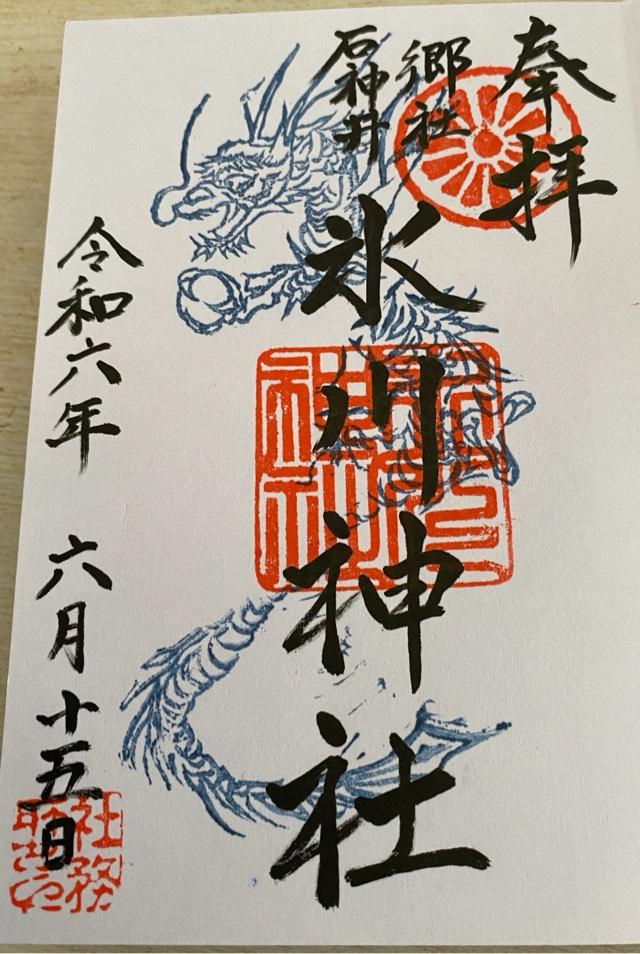 奉拝
郷社
石神井
氷川神社
令和六年 六月十五日
社務